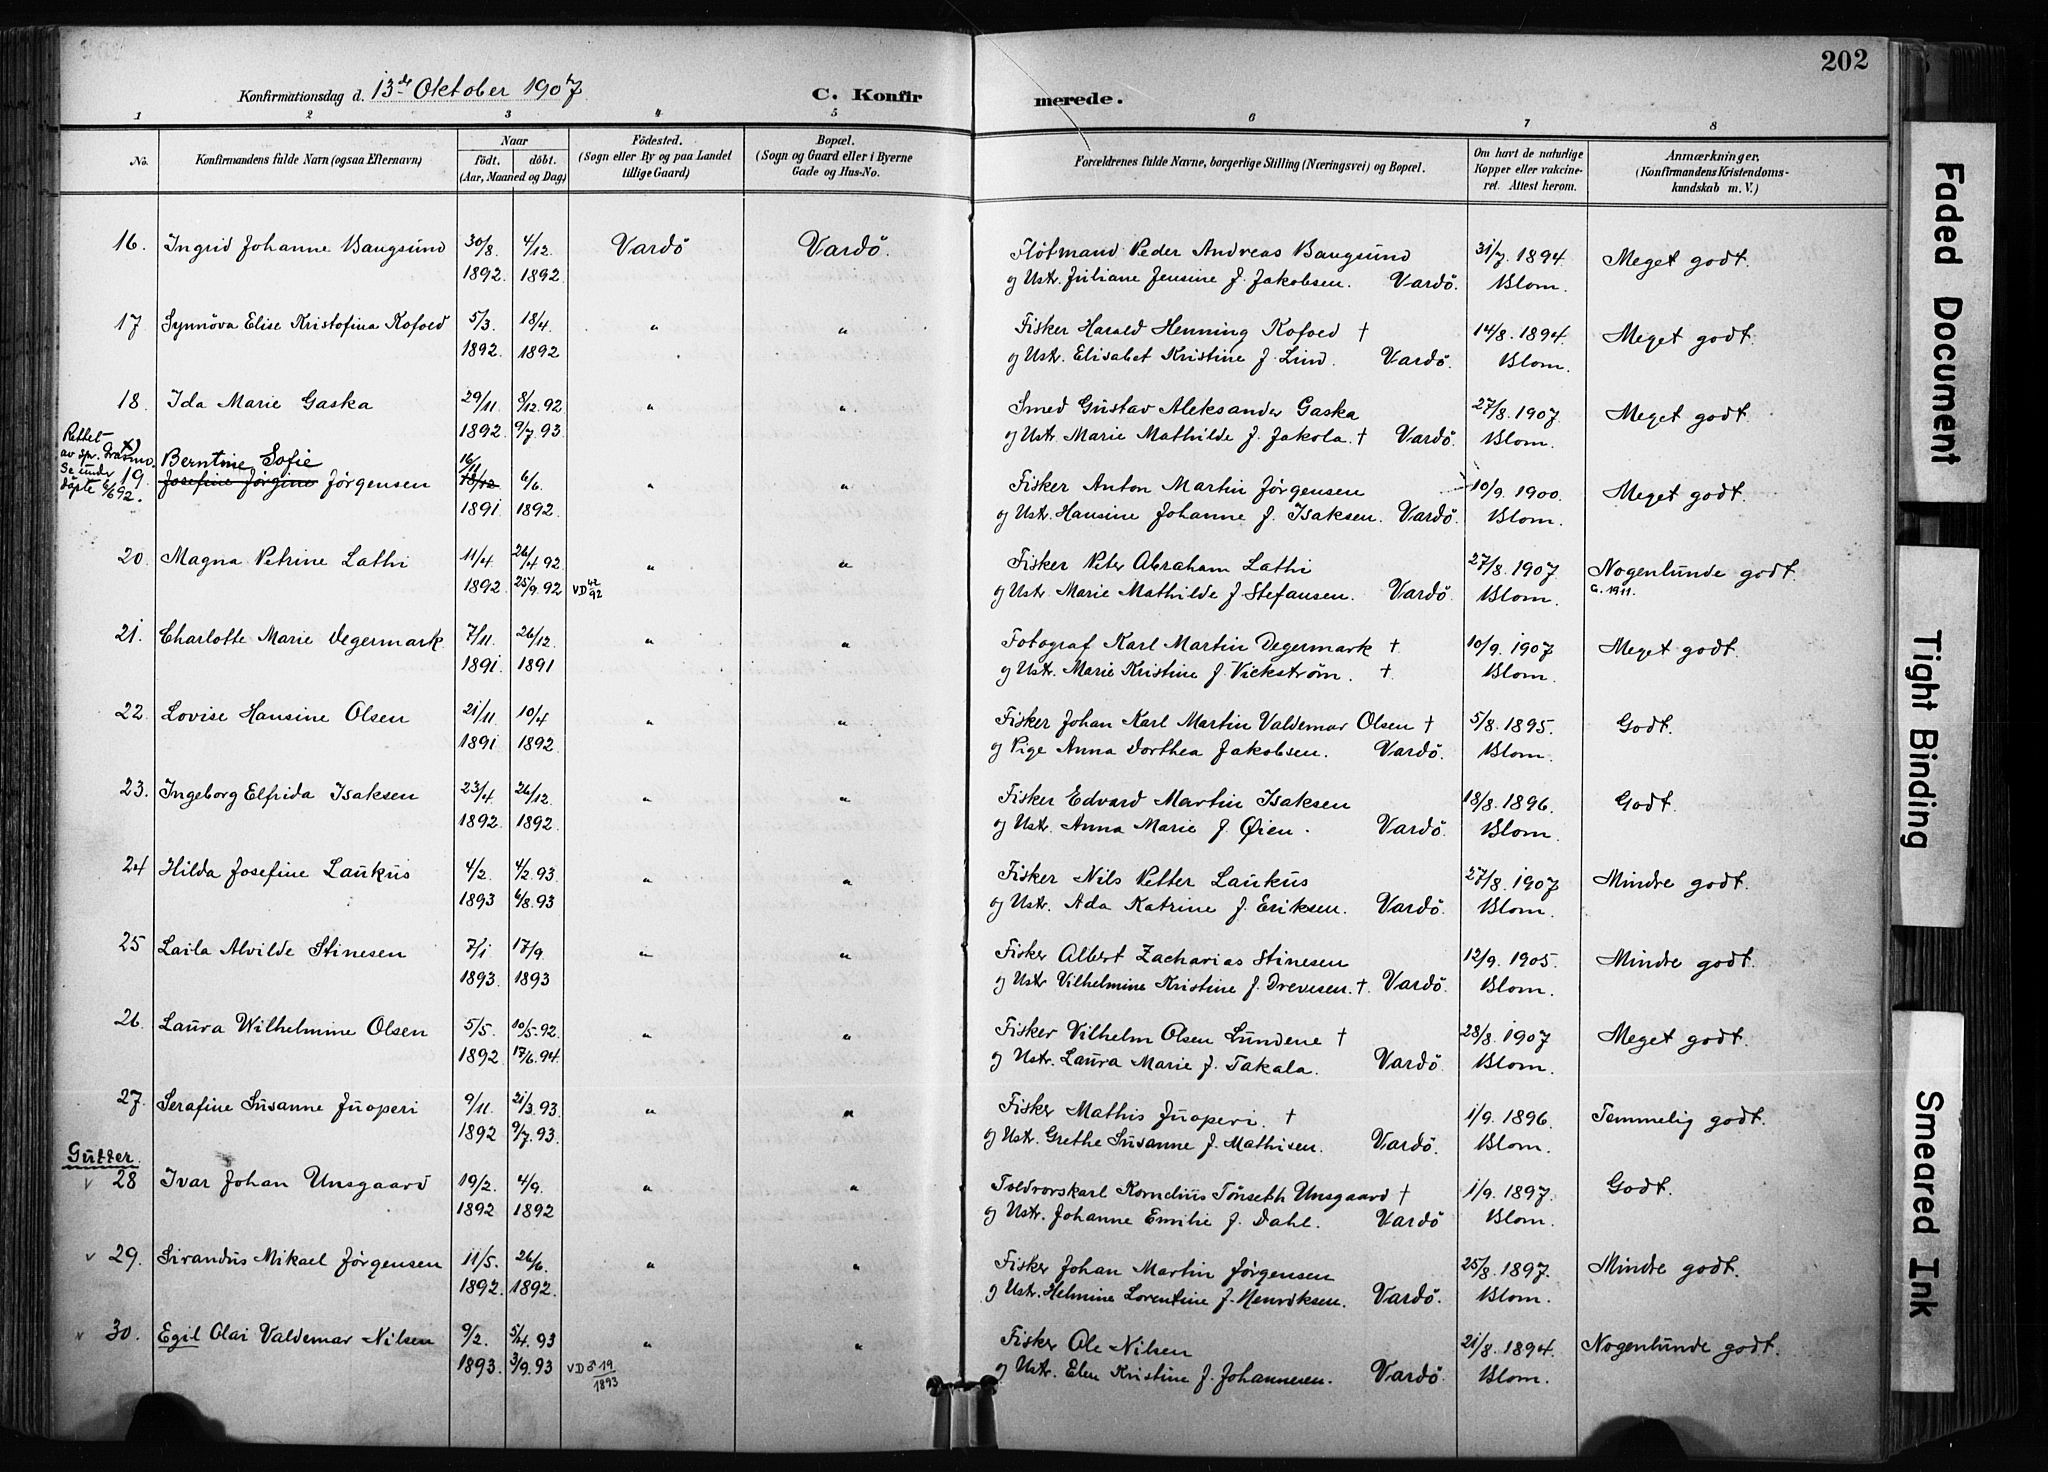 202
Konfirmationsdag d. 13de Oktober 1907
C. Konfirmerede.
1 2 3 4 5 6 7 8
No.
Konfirmandens fulde Navn (ogsaa Efternavn)
Naar
födt. döbt.
(Aar, Maaned og Dag)
Födested.
(Sogn eller By og paa Landet
tillige Gaard)
Bopæl.
(Sogn og Gaard eller i Byerne
Gade og Hus-No.
Forældrenes fulde Navne, borgerlige Stilling (Næringsvei) og Bopæl.
Om havt de naturlige
Kopper eller vakcine-
ret. Attest herom.
Anmærkninger,
(Konfirmandens Kristendoms-
kundskab m. V.)
16. Ingrid Johanne Bangsund 30/8. 4/12. Vardö Vardö. Flötmand Peder Andreas Bangsund 31/7. 1894. Meget godt.
1892. 1892. og Ustr. Juliane Jensine f. Jakobsen. Vardö. Blom.
17. Synnöva Elise Kristofina Kofoed 5/3. 18/4. " " Fisker Harald Henning Kofoed † 14/8. 1894. Meget godt.
1892. 1892 og Ustr. Elisabet Kristine f. Lind. Vardö. Blom.
18. Ida Marie Gaska 29/11. 8/12. 92 " " Smed Gustav Aleksander Gaska 27/8. 1907. Meget godt.
1892. 9/7. 93. og Ustr. Marie Mathilde f. Jakola. † Vardö. Blom.
Rettet
av spr.
Se under
döpte 6/6 92.
Berntine Sofie 16/11
19. Josefine Jörgine Jörgensen 18/12 6/6. " " Fisker Anton Martin Jörgensen 10/9. 1900. Meget godt.
1891. 1892. og Ustr. Hansine Johanne f. Isaksen. Vardö. Blom.
20. Magna Petrine Lathi 11/4. 26/4 92. " " Fisker Peter Abraham Lathi 27/8. 1907. Nogenlunde godt.
1892. 25/9. 92 VD 42/92 og Ustr. Marie Mathilde f Stefansen. Vardö. Blom. G. 1911.
21. Charlotte Marie Degermark 7/11. 26/12. " " Fotograf Karl Martin Degermark † 10/9. 1907 Meget godt.
1891. 1891 og Ustr. Marie Kristine f. Vickström. †. Blom.
22. Lovise Hansine Olsen 21/11. 10/4 " " Fisker Johan Karl Martin Valdemar Olsen † 5/8. 1895. Godt.
1891 1892. og Pige Anna Dorthea Jakobsen. Vardö. Blom.
23. Ingeborg Elfrida Isaksen 23/4. 26/12. " " Fisker Edvard Martin Isaksen 18/8. 1896. Godt.
1892. 1892. og Ustr. Anna Marie f. Øien. Vardö. Blom.
24 Hilda Josefine Laukus 4/2. 4/2. 93. " " Fisker Nils Petter Laukus 27/8. 1907 Mindre godt.
1893 6/8. 93 og Ustr. Ada Katrine f. Eriksen. Vardö. Blom.
25 Laila Alvilde Stinesen 7/1. 17/9. " " Fisker Albert Zacharias Stinesen 12/9. 1905. Mindre godt.
1893. 1893 og Ustr Vilhelmine Kristine f. Drevesen. †. Vardö. Blom.
26. Laura Wilhelmine Olsen 5/5. 10/5. 92. " " Fisker Vilhelm Olsen Lundene † 28/8. 1907 Meget godt.
1892 17/6. 94. og Ustr. Laura Marie f. Takala. Vardö Blom.
27. Serafine Susanne Juoperi 9/11. 21/3. 93. " " Fisker Mathis Juoperi. † 1/9. 1896. Temmelig godt.
1892 9/7. 93. og Ustr. Grethe Susanne f. Mathisen. Vardö. Blom.
Gutter.
v 28 Ivar Johan Unsgaard 19/2. 4/9. " " Toldrorskarl Kornelius Tönseth Unsgaard † 1/9. 1897. Godt.
1892 1892 og Ustr. Johanne Emilie f. Dahl. Vardö Blom.
v 29. Sirandus Mikael Jörgensen 11/5. 26/6. " " Fisker Johan Martin Jörgensen 25/8. 1897. Mindre godt.
1892. 1892. og Ustr. Helmine Lorentine f. Henriksen. Vardö. Blom.
v 30. Egil Olai Valdemar Nilsen 9/2. 5/4. 93 " " Fisker Ole Nilsen 21/8. 1894. Nogenlunde godt.
1893. 3/9. 93 VD 19/1893 og Ustr. Elen Kristine f. Johannesen. Vardö. Blom.
Faded Document
Tight Binding
Smeared Ink